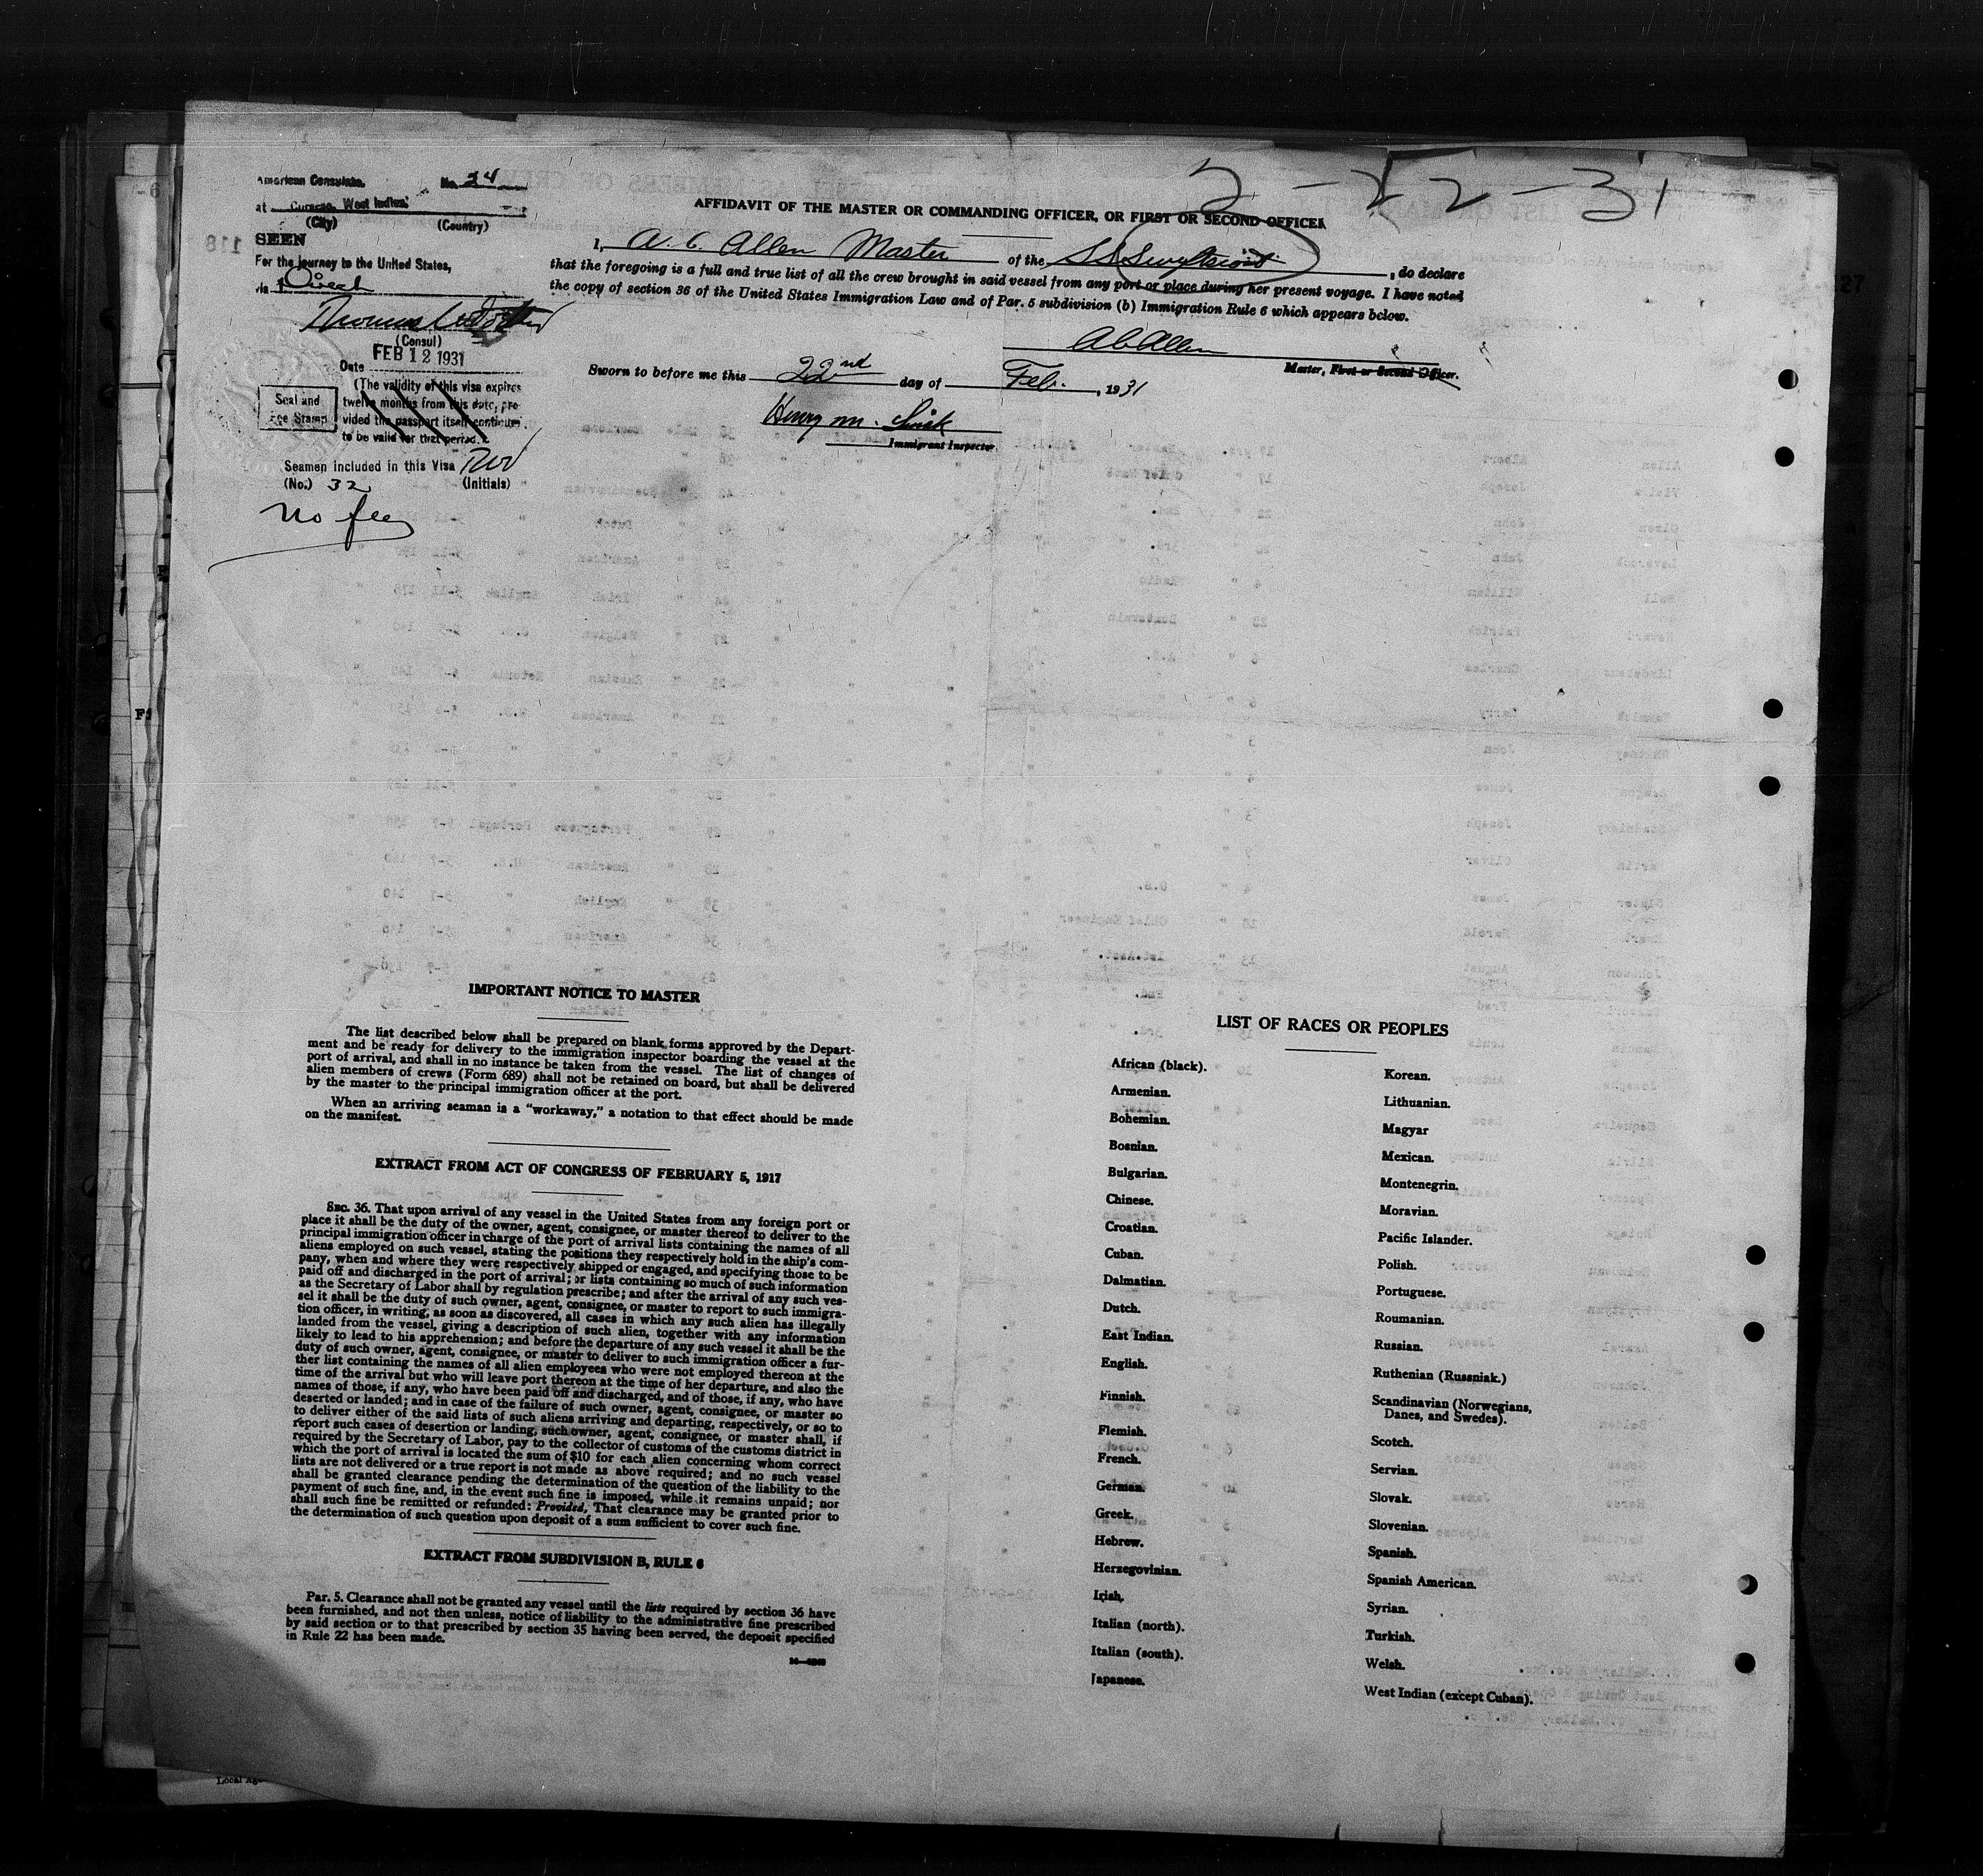 2-22-31
American Consulate. No. 24
at Curacao, West Indies.
(City) (Country)
SEEN
For the journey to the United States,
via Direct
(Consul)
Date FEB 12 1931
(The validity of this visa expires
twelve months from this date, pro-
vided the passport itself continues
to be valid for that period.)
Seal and
Fee Stamp
Seamen included in this Visa
(No.) 32 (Initials)
No fee
118
AFFIDAVIT OF THE MASTER OR COMMANDING OFFICER, OR FIRST OR SECOND OFFICER
I, A. C. Allen Master of the SS Swiftscout, do declare
that the foregoing is a full and true list of all the crew brought in said vessel from any port or place during her present voyage. I have noted
the copy of section 36 of the United States Immigration Law and of Par. 5 subdivision (b) Immigration Rule 6 which appears below.
A C Allen
Master, First or Second Officer.
Sworn to before me this 22nd day of Feb., 1931
Henry M.
Immigrant Inspector.
IMPORTANT NOTICE TO MASTER
The list described below shall be prepared on blank forms approved by the Depart-
ment and be ready for delivery to the immigration inspector boarding the vessel at the
port of arrival, and shall in no instance be taken from the vessel. The list of changes of
alien members of crews (Form 689) shall not be retained on board, but shall be delivered
by the master to the principal immigration officer at the port.
When an arriving seaman is a "workaway," a notation to that effect should be made
on the manifest.
EXTRACT FROM ACT OF CONGRESS OF FEBRUARY 5, 1917
SEC. 36. That upon arrival of any vessel in the United States from any foreign port or
place it shall be the duty of the owner, agent, consignee, or master thereof to deliver to the
principal immigration officer in charge of the port of arrival lists containing the names of all
aliens employed on such vessel, stating the positions they respectively hold in the ship's com-
pany, when and where they were respectively shipped or engaged, and specifying those to be
paid off and discharged in the port of arrival; or lists containing so much of such information
as the Secretary of Labor shall by regulation prescribe; and after the arrival of any such ves-
sel it shall be the duty of such owner, agent, consignee, or master to report to such immigra-
tion officer, in writing, as soon as discovered, all cases in which any such alien has illegally
landed from the vessel, giving a description of such alien, together with any information
likely to lead to his apprehension; and before the departure of any such vessel it shall be the
duty of such owner, agent, consignee, or master to deliver to such immigration officer a fur-
ther list containing the names of all alien employees who were not employed thereon at the
time of the arrival but who will leave port thereon at the time of her departure, and also the
names of those, if any, who have been paid off and discharged, and of those, if any, who have
deserted or landed; and in case of the failure of such owner, agent, consignee, or master so
to deliver either of the said lists of such aliens arriving and departing, respectively, or so to
report such cases of desertion or landing, such owner, agent, consignee, or master shall, if
required by the Secretary of Labor, pay to the collector of customs of the customs district in
which the port of arrival is located the sum of $10 for each alien concerning whom correct
lists are not delivered or a true report is not made as above required; and no such vessel
shall be granted clearance pending the determination of the question of the liability to the
payment of such fine, and, in the event such fine is imposed, while it remains unpaid; nor
shall such fine be remitted or refunded: Provided, That clearance may be granted prior to
the determination of such question upon deposit of a sum sufficient to cover such fine.
EXTRACT FROM SUBDIVISION B, RULE 6
Par. 5. Clearance shall not be granted any vessel until the lists required by section 36 have
been furnished, and not then unless, notice of liability to the administrative fine prescribed
by said section or to that prescribed by section 35 having been served, the deposit specified
in Rule 22 has been made.
LIST OF RACES OR PEOPLES
African (black).
Armenian.
Bohemian.
Bosnian.
Bulgarian.
Chinese.
Croatian.
Cuban.
Dalmatian.
Dutch.
East Indian.
English.
Finnish.
Flemish.
French.
German.
Greek.
Hebrew.
Herzegovinian.
Irish.
Italian (north).
Italian (south).
Japanese.
Korean.
Lithuanian.
Magyar
Mexican.
Montenegrin.
Moravian.
Pacific Islander.
Polish.
Portuguese.
Roumanian.
Russian.
Ruthenian (Russniak.)
Scandinavian (Norwegians,
Danes, and Swedes).
Scotch.
Servian.
Slovak.
Slovenian.
Spanish.
Spanish American.
Syrian.
Turkish.
Welsh.
West Indian (except Cuban).